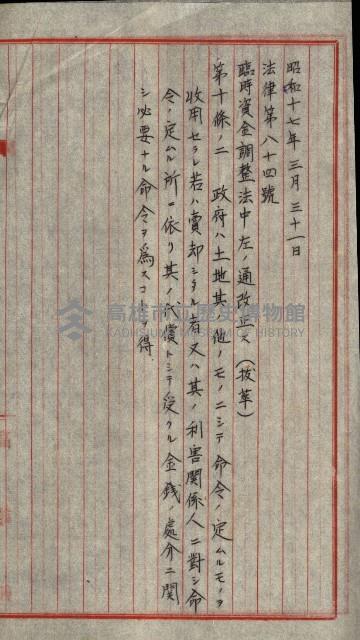 昭和十七年三月三十一日
法律第八十四號
臨時資金調整法中左ノ通改正ス（拔萃）
第十條ノ二 政府ハ土地其ノ他ノモノニシテ命令ノ定ムルモノヲ
收用セラレ若ハ賣却シタル者又ハ其ノ利害關係人ニ對シ命
令ノ定ムル所ニ依リ其ノ代償トシテ受クル金錢ノ處介ニ關
シ必要ナル命令ヲ爲スコトヲ得
高雄市立歷史博物館
KAOHSIUNG MUSEUM OF HISTORY